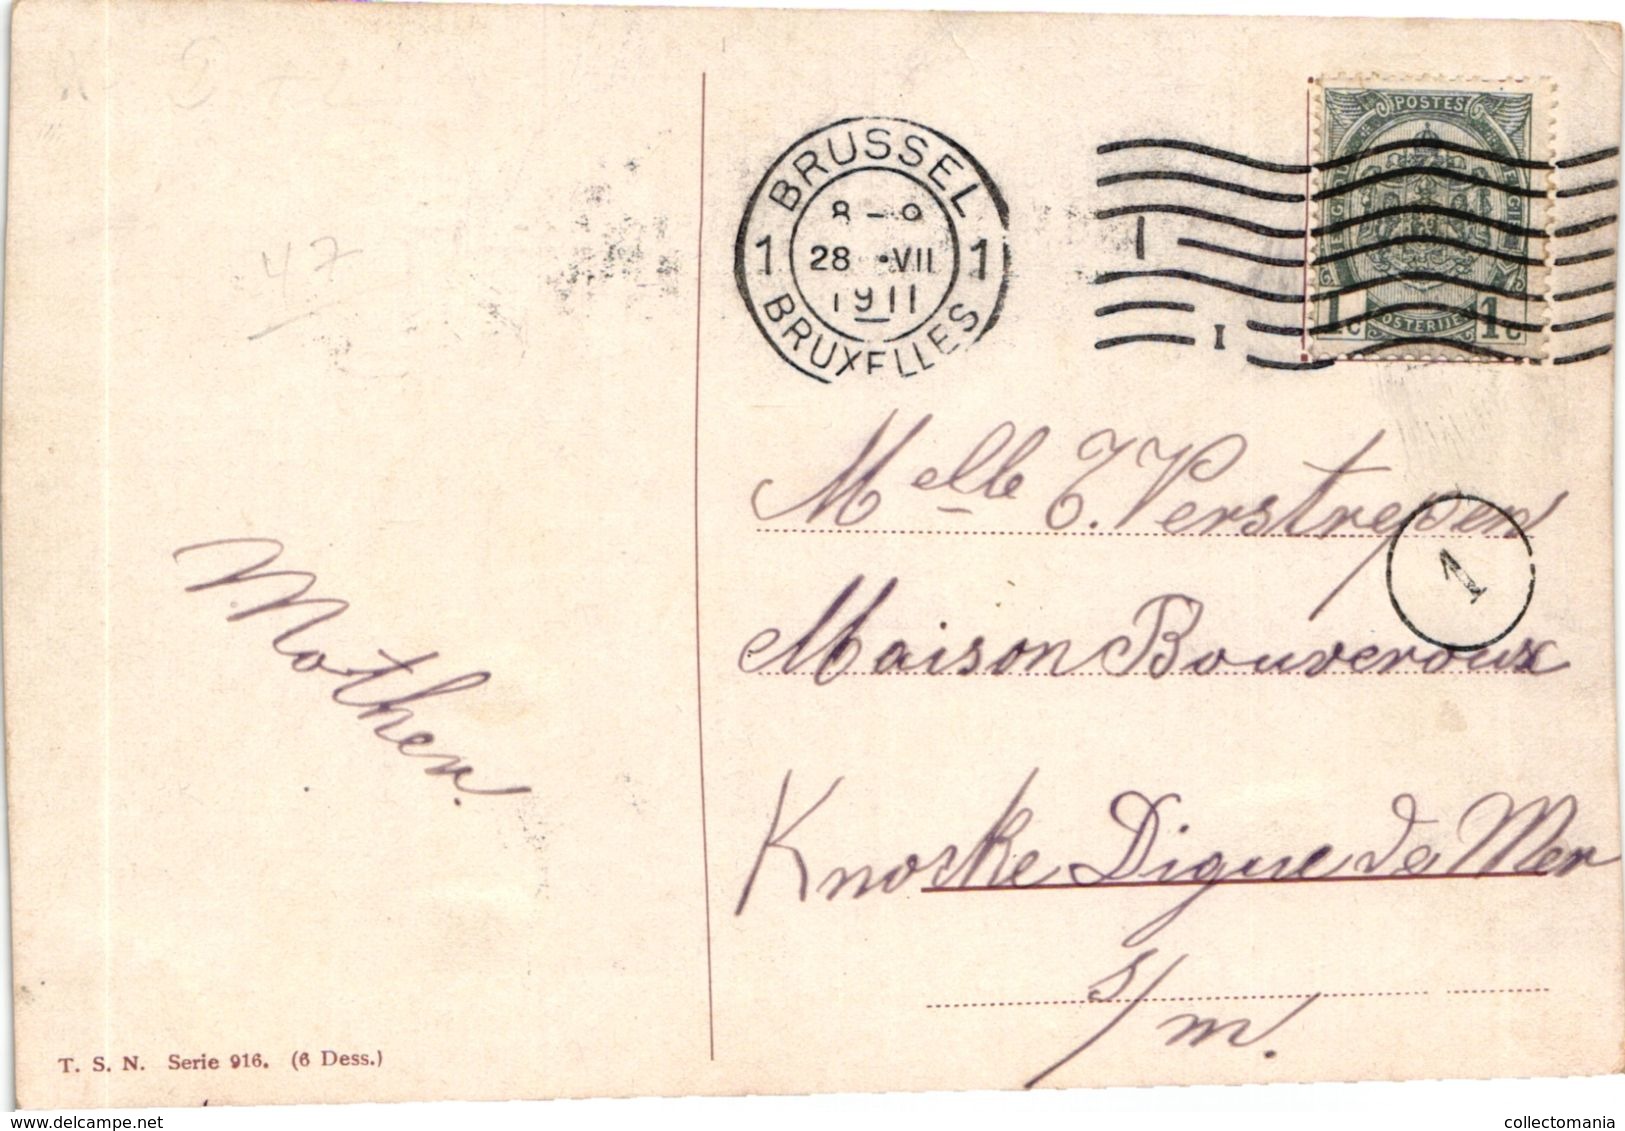 47
Mother.
T. S. N. Serie 916. (6 Dess.)
BRUSSEL
8-9
1 28 •VII 1
1911
BRUXELLES
I
POSTES
1c POSTERIJEN 1c
Melle T. Verstrepen
1
Maison Bouveroux
Knocke Digue de Mer
s/m.
delcampe.net
collectomania